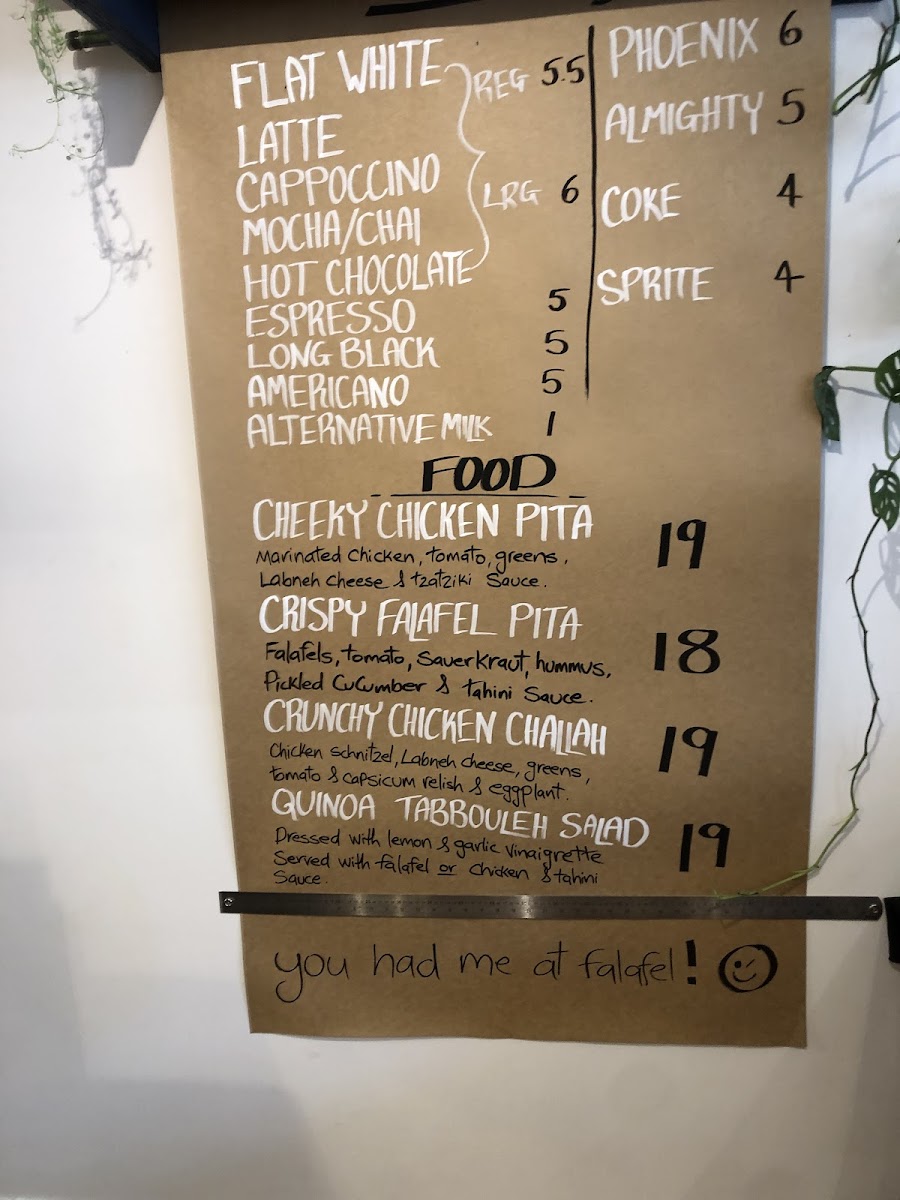 FLAT WHITE REG 5.5
LATTE
CAPPOCCINO LRG 6
MOCHA/CHAI
HOT CHOCOLATE
ESPRESSO 5
LONG BLACK 5
AMERICANO 5
ALTERNATIVE MILK 1
PHOENIX 6
ALMIGHTY 5
COKE 4
SPRITE 4
FOOD
CHEEKY CHICKEN PITA 19
Marinated Chicken, tomato, greens,
Labneh cheese & tzatziki Sauce.
CRISPY FALAFEL PITA 18
Falafels, tomato, Sauerkraut, hummus,
Pickled CuCumber & tahini Sauce.
CRUNCHY CHICKEN CHALLAH 19
Chicken schnitzel, Labneh cheese, greens,
tomato & capsicum relish & eggplant.
QUINOA TABBOULEH SALAD 19
Dressed with lemon & garlic vinaigrette
Served with falafel or chicken & tahini
Sauce.
you had me at falafel!